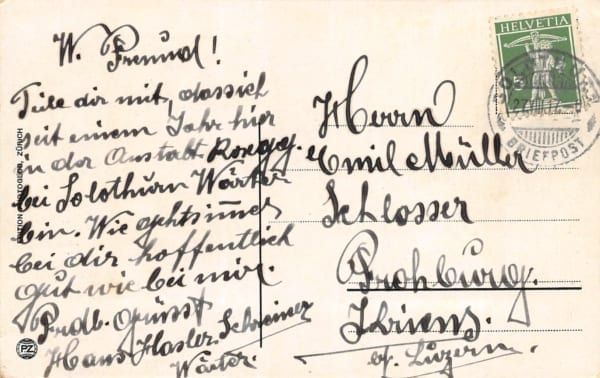 W. Freund!
Teile dir mit, dass ich
seit einem Jahr hier
in der Anstalt Rosegg.
bei Solothurn Wärter
bin. Wie gehts immer
bei dir hoffentlich
gut wie bei mir.
Frdb. grüsst
Hans Hasler. Schreiner
Wärter.
HELVETIA
BRIEFPOST
Herrn
Emil Müller
Schlosser
Frohburg.
Kriens.
b/. Luzern.
PZ
ZÜRICH